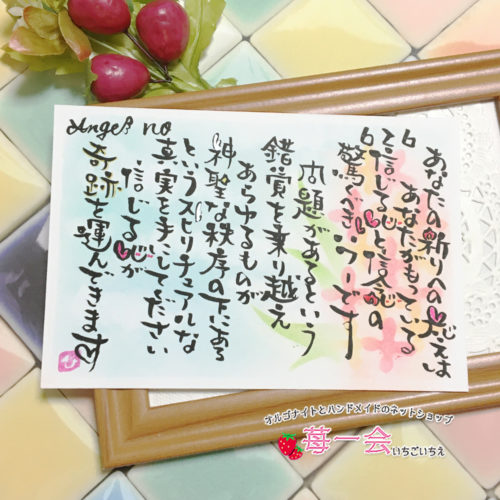 Angel no
626
あなたの祈りへの応えは
あなたがもっている
信じる心と信念の
驚くべきパワーです
問題があるという
錯覚を乗り越え
あらゆるものが
神聖な秩序の下にある
というスピリチュアルな
真実を手にしてください
信じる心が
奇跡を運んできます
オルゴナイトとハンドメイドのネットショップ
苺一会いちごいちえ